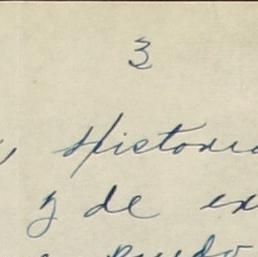 3
Historia
y de ex
puedo